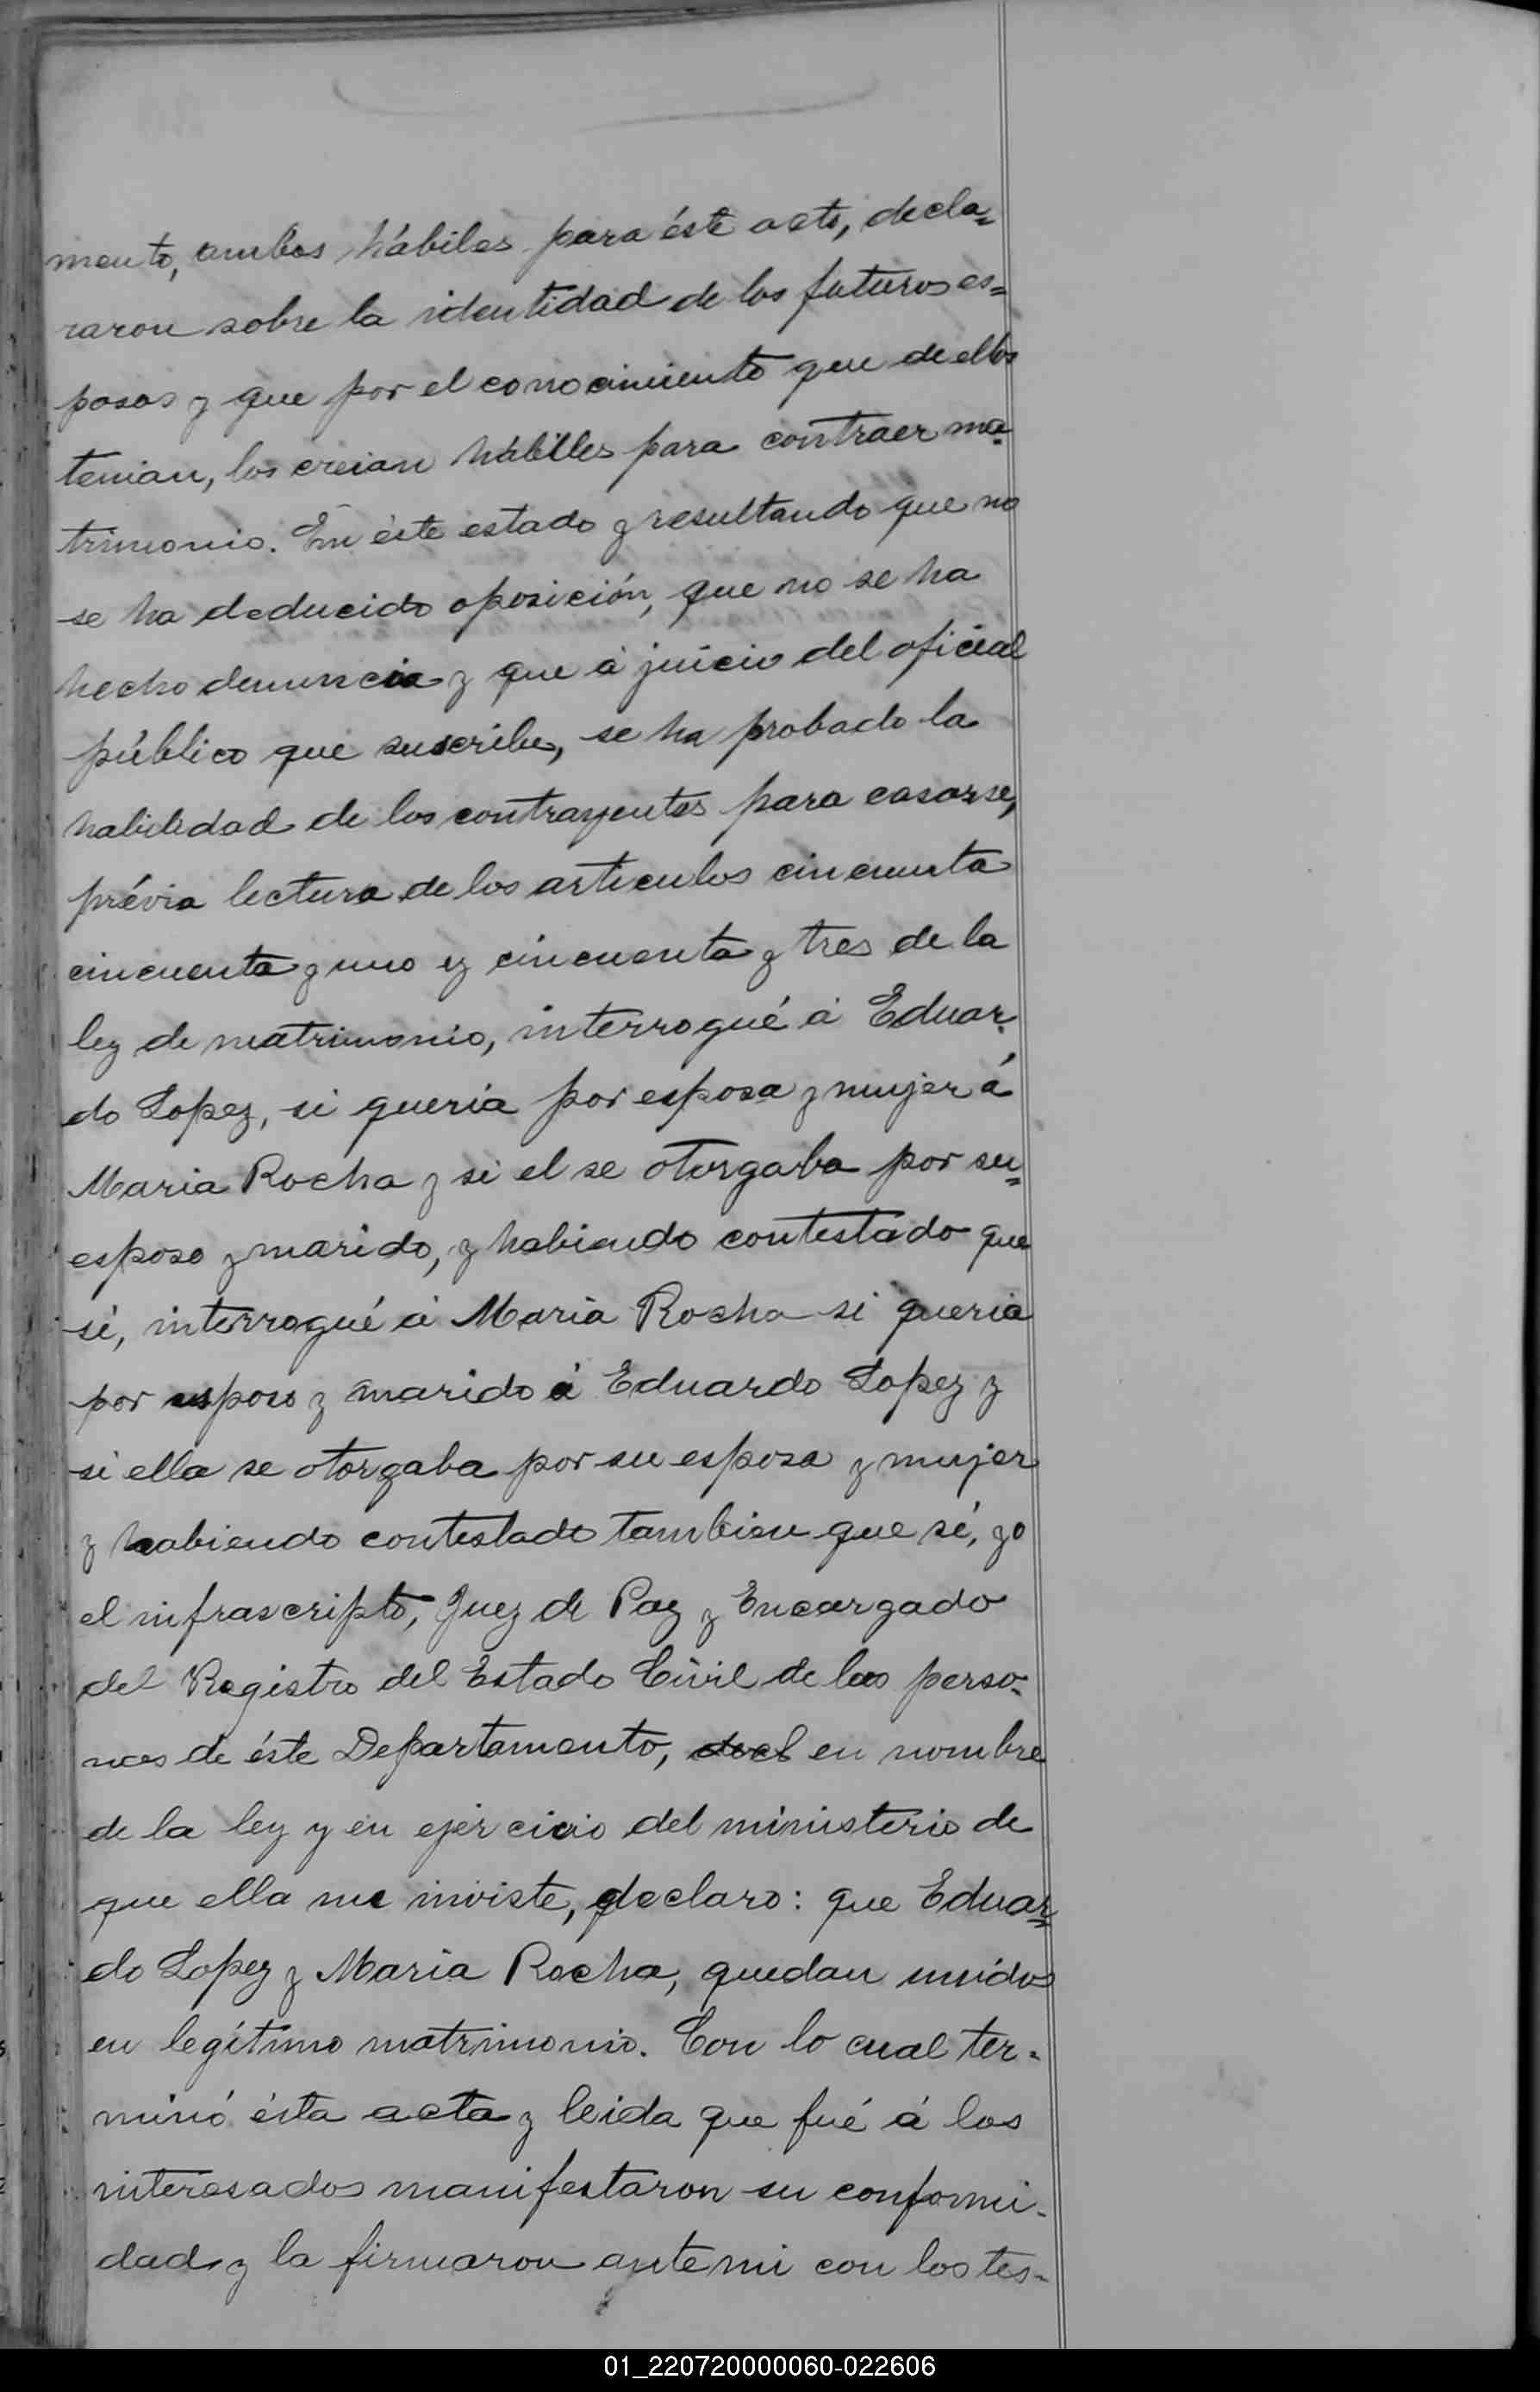 mento, ambos hábiles para éste acto, decla=
raron sobre la identidad de los futuros es=
posos y que por el conocimiento que de ellos
tenian, los creian hábilles para contraer ma=
trimonio. En éste estado y resultando que no
se ha deducido oposición, que no se ha
hecho denuncia y que á juicio del oficial
público que suscribe, se ha probado la
habilidad de los contrayentes para casarse,
prévia lectura de los articulos cincuenta
cincuenta y uno y cincuenta y tres de la
ley de matrimonio, interrogué á Eduar=
do Lopez, si queria por esposa y mujer á
Maria Rocha y si el se otorgaba por su=
esposo y marido, y habiendo contestado que
sí, interrogué á Maria Rocha si queria
por esposo y marido á Eduardo Lopez y
si ella se otorgaba por su esposa y mujer
y habiendo contestado tambien que sí, yo
el infrascripto, Juez de Paz y Encargado
del Registro del Estado Civil de las perso=
nas de éste Departamento, en nombre
de la ley y en ejercicio del ministerio de
que ella me inviste, declaro: que Eduar=
do Lopez y Maria Rocha, quedan unidos
en legítimo matrimonio. Con lo cual ter-
minó ésta acta y leida que fué á los
interesados manifestaron su conformi-
dad y la firmaron ante mi con los tes-
01_220720000060-022606